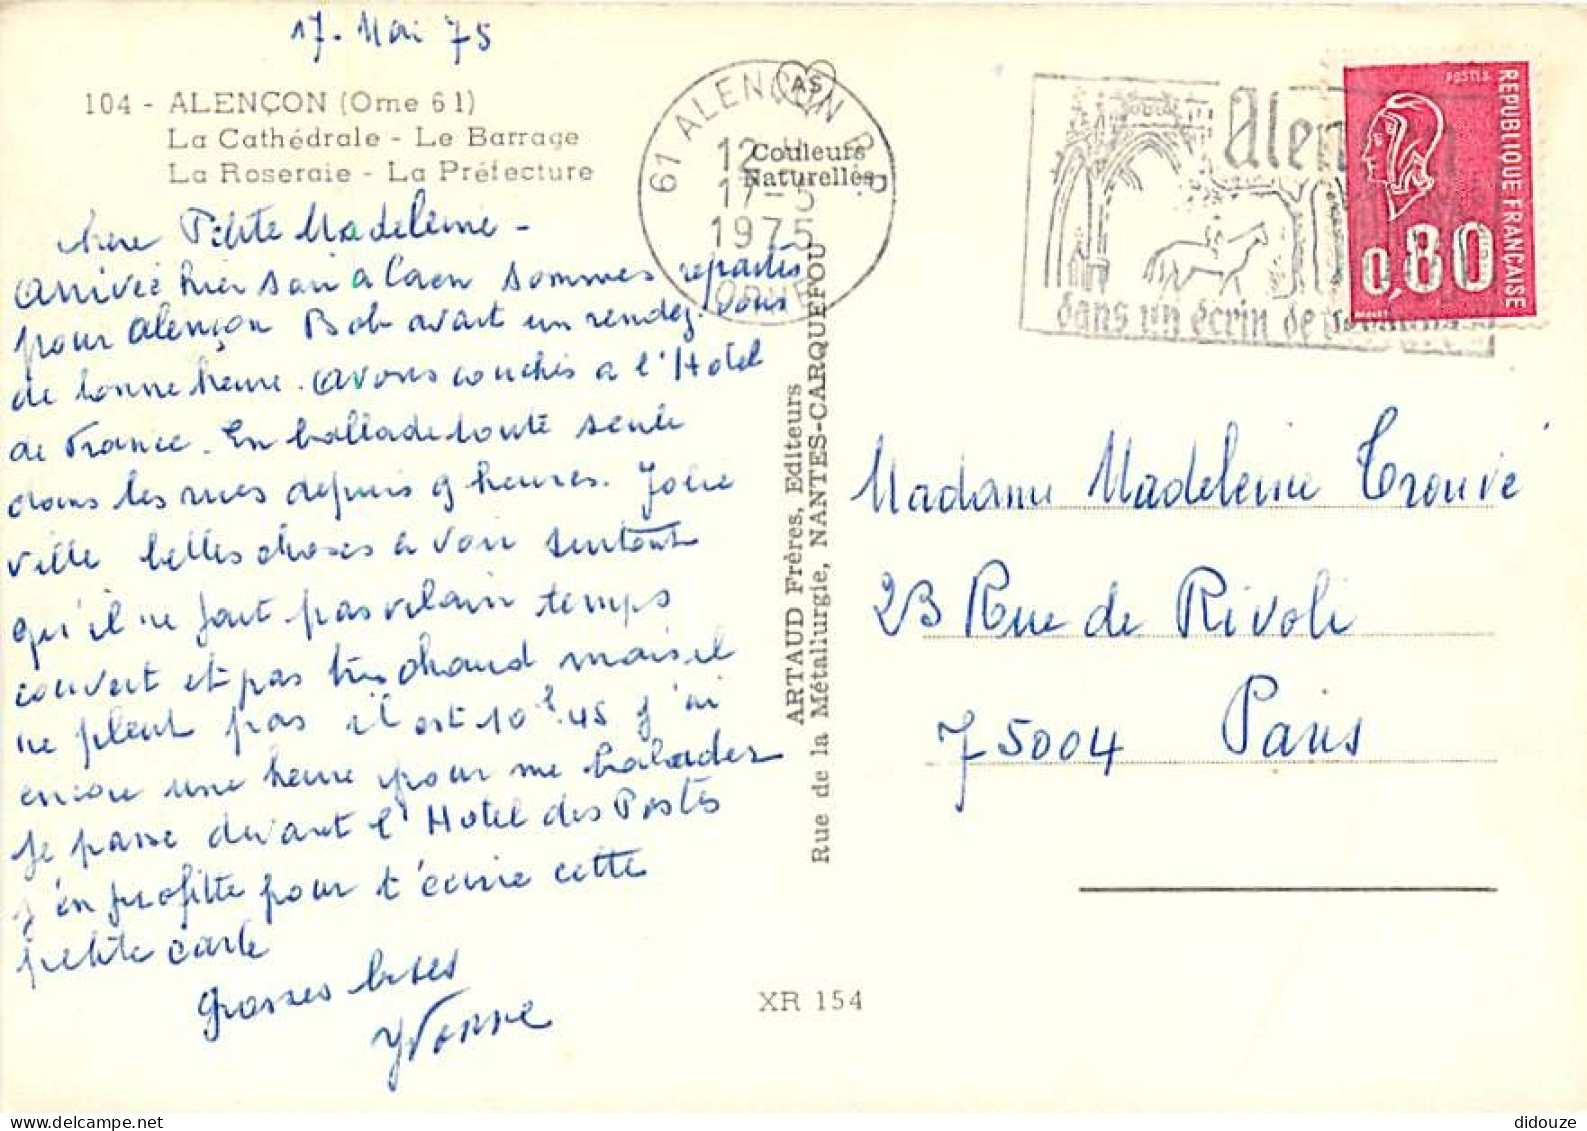 17. Mai 75
104 - ALENÇON (Orne 61)
La Cathédrale - Le Barrage
La Roseraie - La Préfecture
chere Petite Madeleine -
Arrivée hier soir a Caen sommes repartis
pour Alençon Bob avait un rendez-vous
de bonne heure. Avons couchés a l'Hotel
de France. En ballade toute seule
dans les rues depuis 9 heures. Jolie
ville belles choses a voir surtout
qu'il ne fait pas vilain temps
couvert et pas très chaud mais il
ne pleut pas il est 10h.45 j'ai
encore une heure pour me balader
je passe devant l'Hotel des Postes
j'en profitte pour t'écrire cette
petite carte
Grosses bises
Yvonne
AS
Couleurs
Naturelles
61 ALENÇON R.P.
12 H
17-5
1975
ORNE
Alençon
dans un écrin de
POSTES
REPUBLIQUE FRANÇAISE
0,80
ARTAUD Frères, Editeurs
Rue de la Métallurgie, NANTES-CARQUEFOU
Madame Madeleine Trouvé
23 Rue de Rivoli
75004 Paris
XR 154
didouze